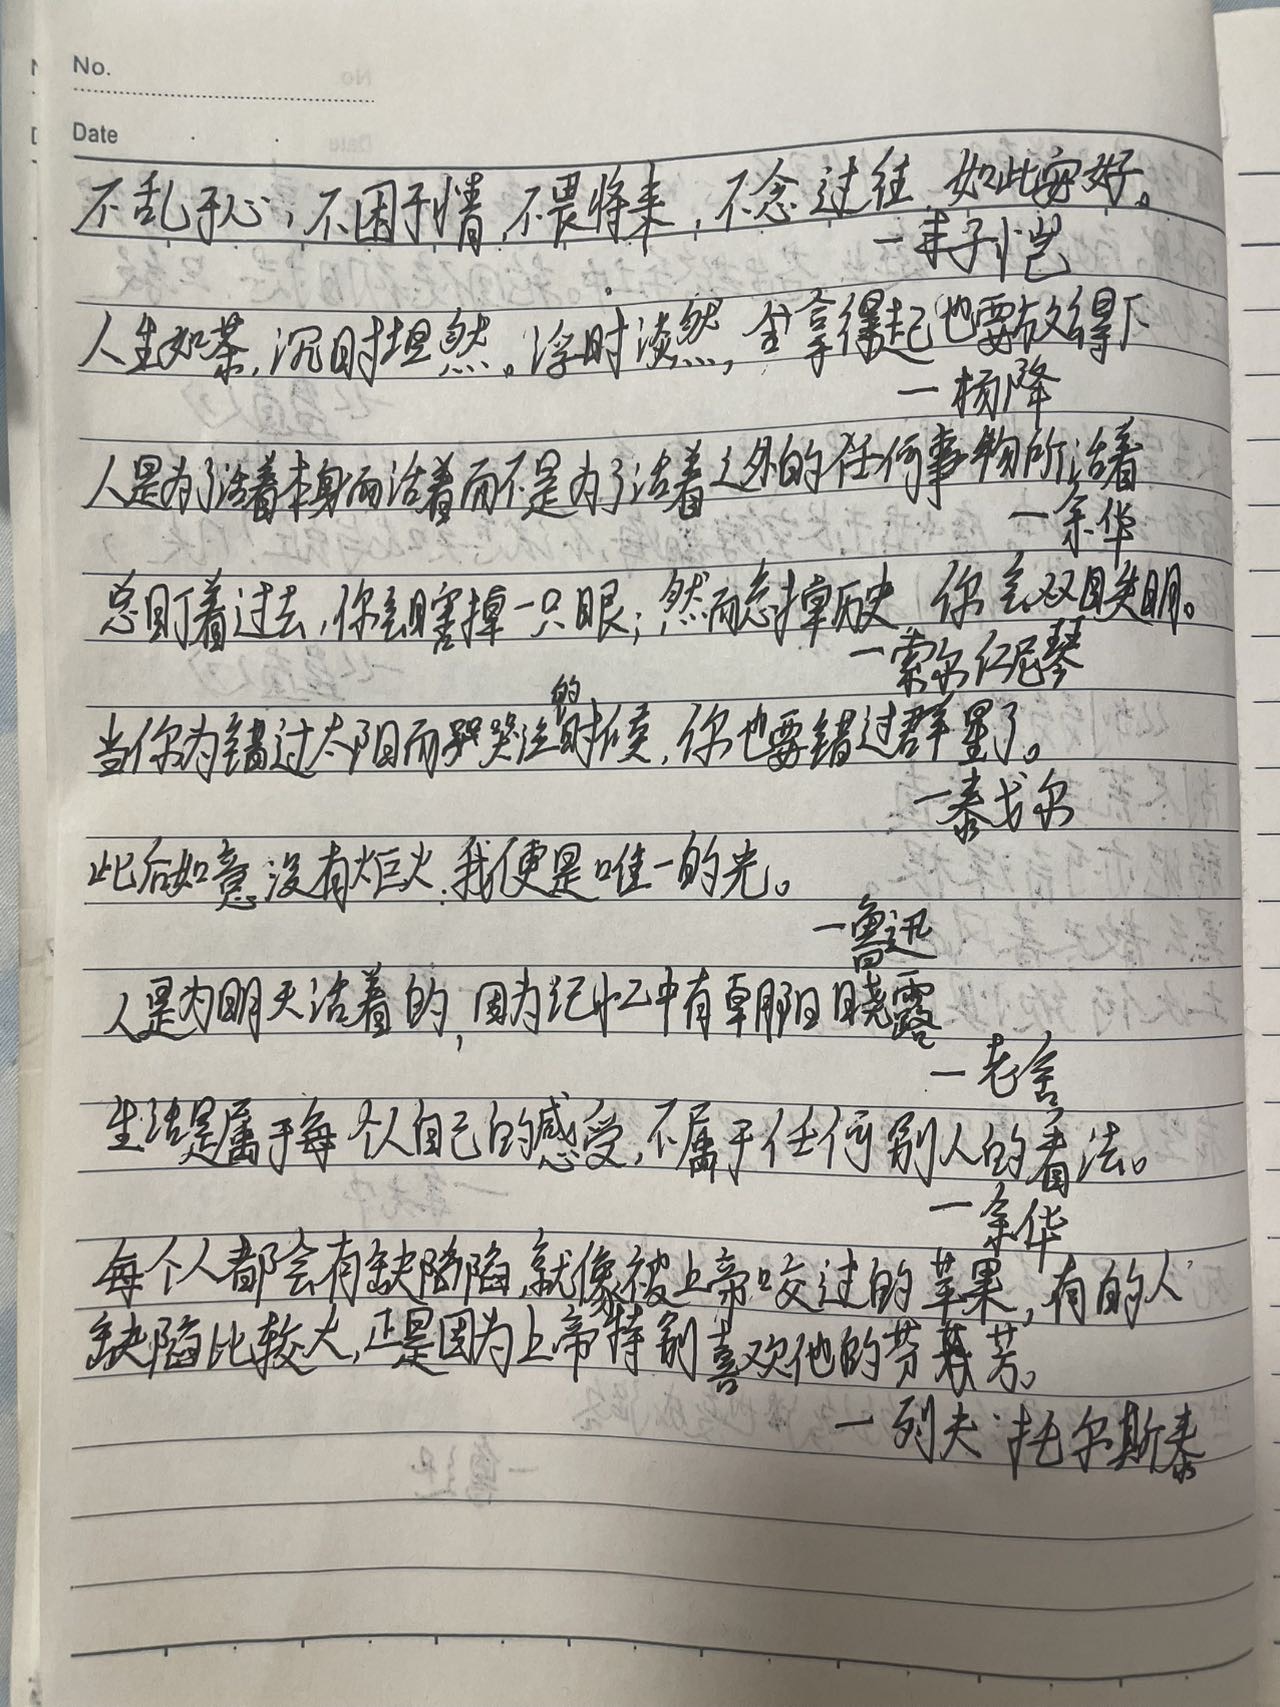 No.
Date
不乱于心，不困于情，不畏将来，不念过往，如此安好。
一丰子恺
人生如茶，沉时坦然。浮时淡然，拿得起也要放得下
一杨降
人是为了活着本身而活着而不是为了活着之外的任何事物所活着
一余华
总盯着过去，你会瞎掉一只眼；然而忘掉历史，你会双目失明。
一索尔仁尼琴
当你为错过太阳而哭泣的时候，你也要错过群星了。
一泰戈尔
此后如竟没有炬火，我便是唯一的光。
一鲁迅
人是为明天活着的，因为记忆中有朝阳晓露
一老舍
生活是属于每个人自己的感受，不属于任何别人的看法。
一余华
每个人都会有缺陷，就像被上帝咬过的苹果，有的人
缺陷比较大，正是因为上帝特别喜欢他的芬芳。
一列夫·托尔斯泰